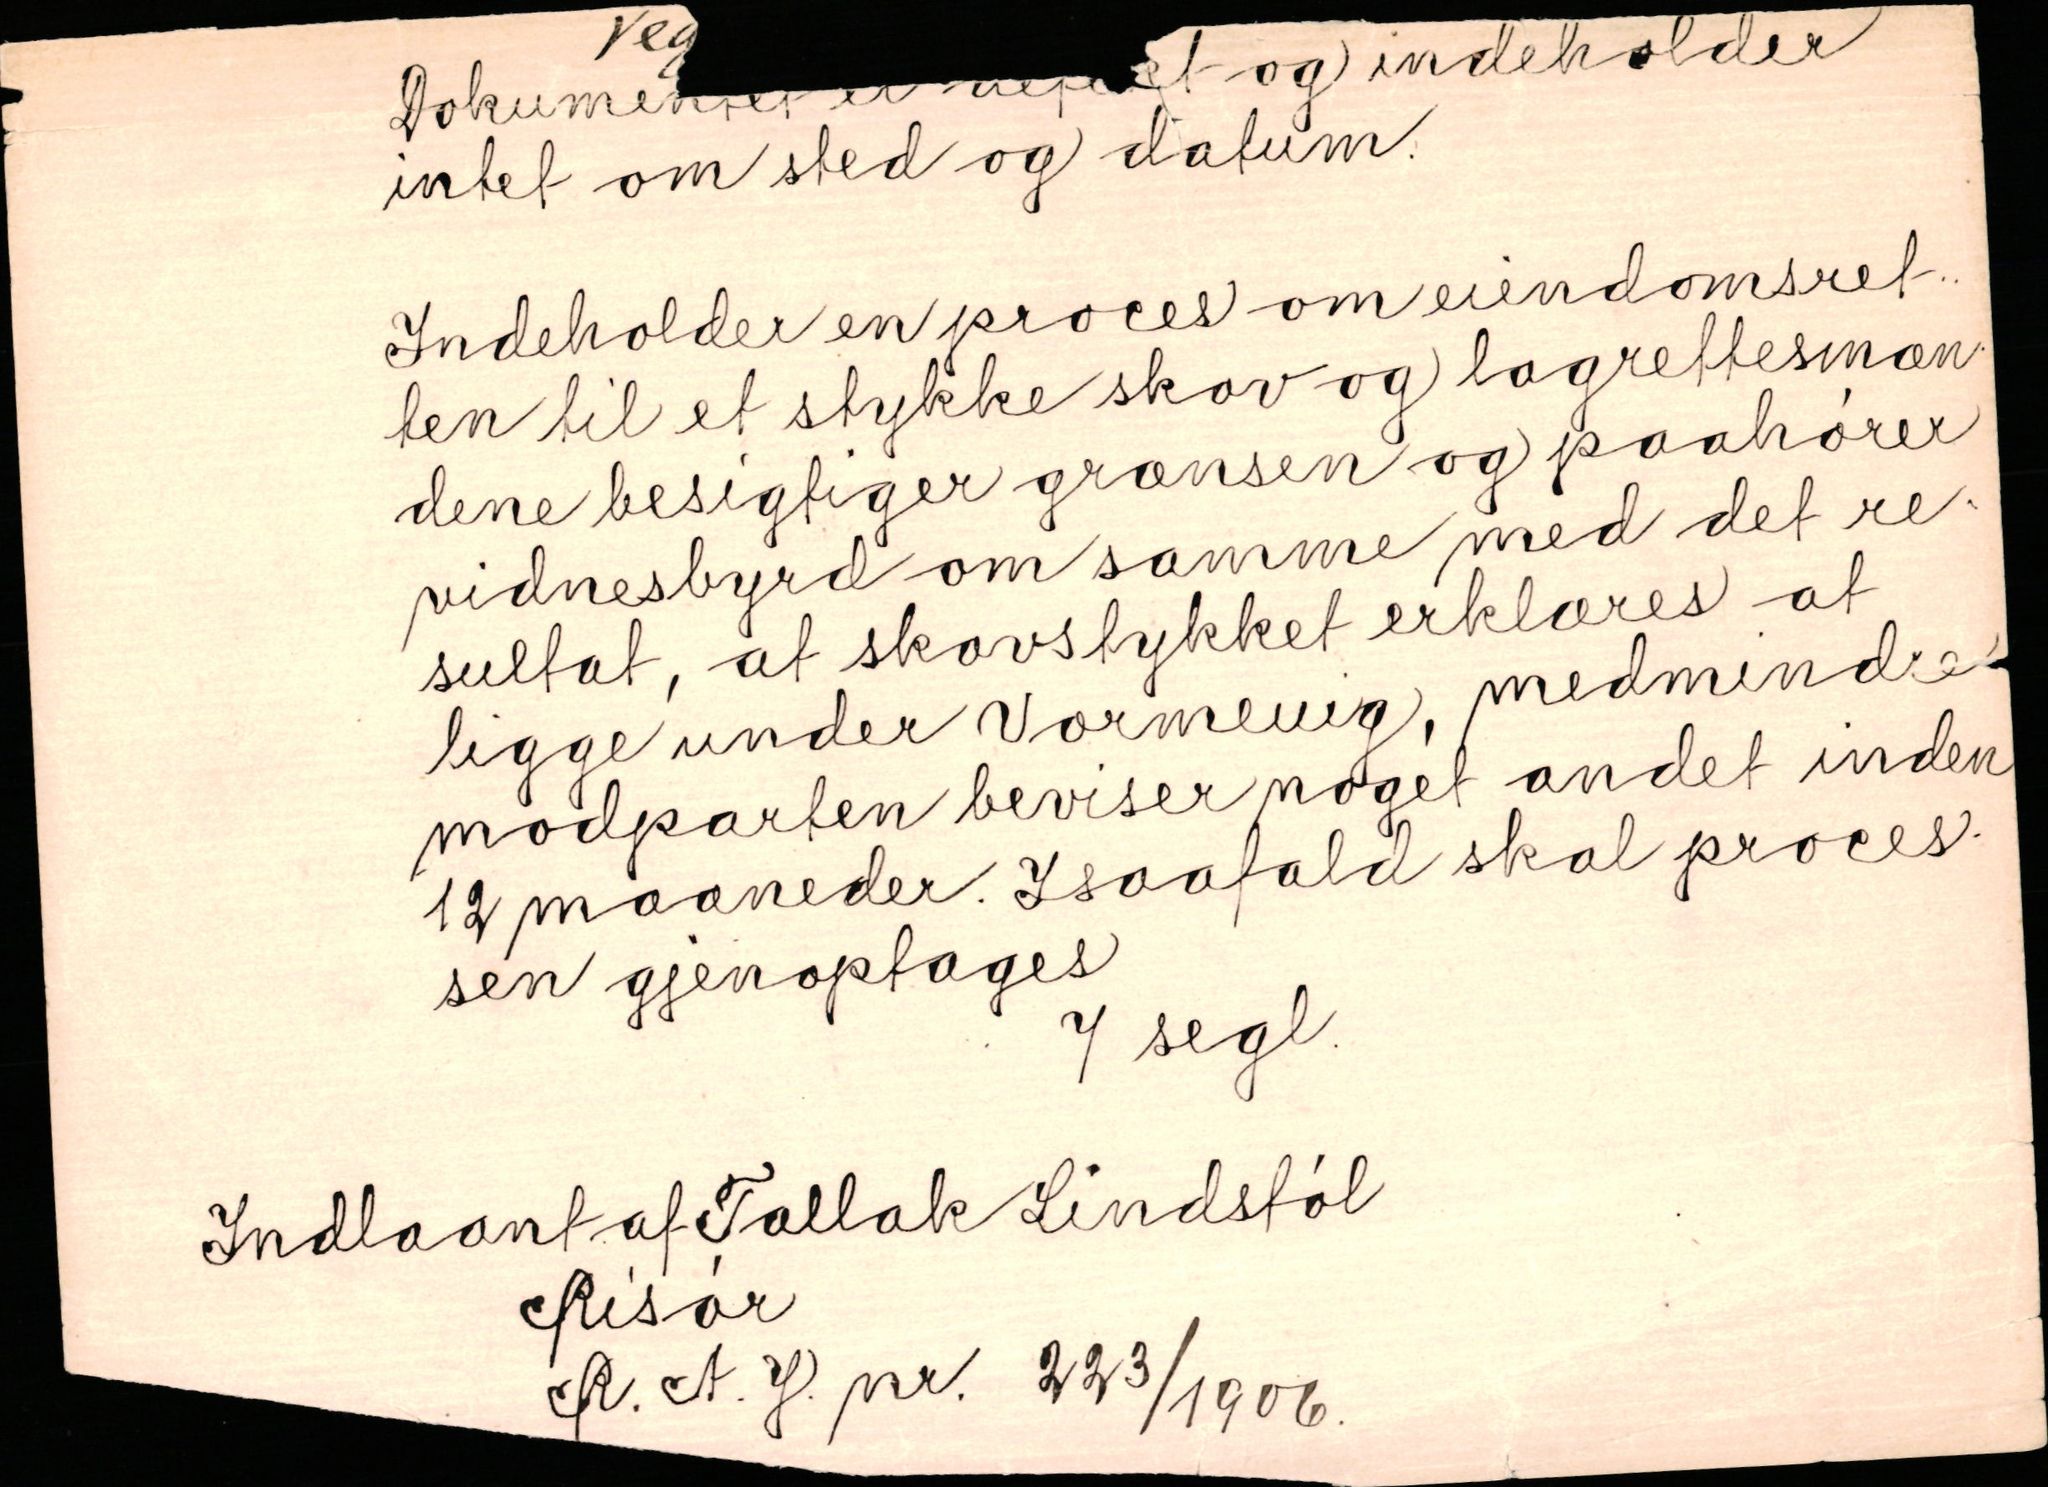 Veg
Dokumentet er defekt og indeholder
intet om sted og datum.
Indeholder en proces om eiendomsret-
ten til et stykke skov og lagrettesmæn-
dene besigtiger grænsen og paahórer
vidnesbyrd om samme med det re-
sultat, at skovstykket erklæres at
ligge under Vormeuig, medmindre
modparten beviser noget andet inden
12 maaneder. Isaafald skal proces-
sen gjenoptages
7 segl.
Indlaant af Tallak Lindstól
Risór
R. A. J. nr. 223/1906.